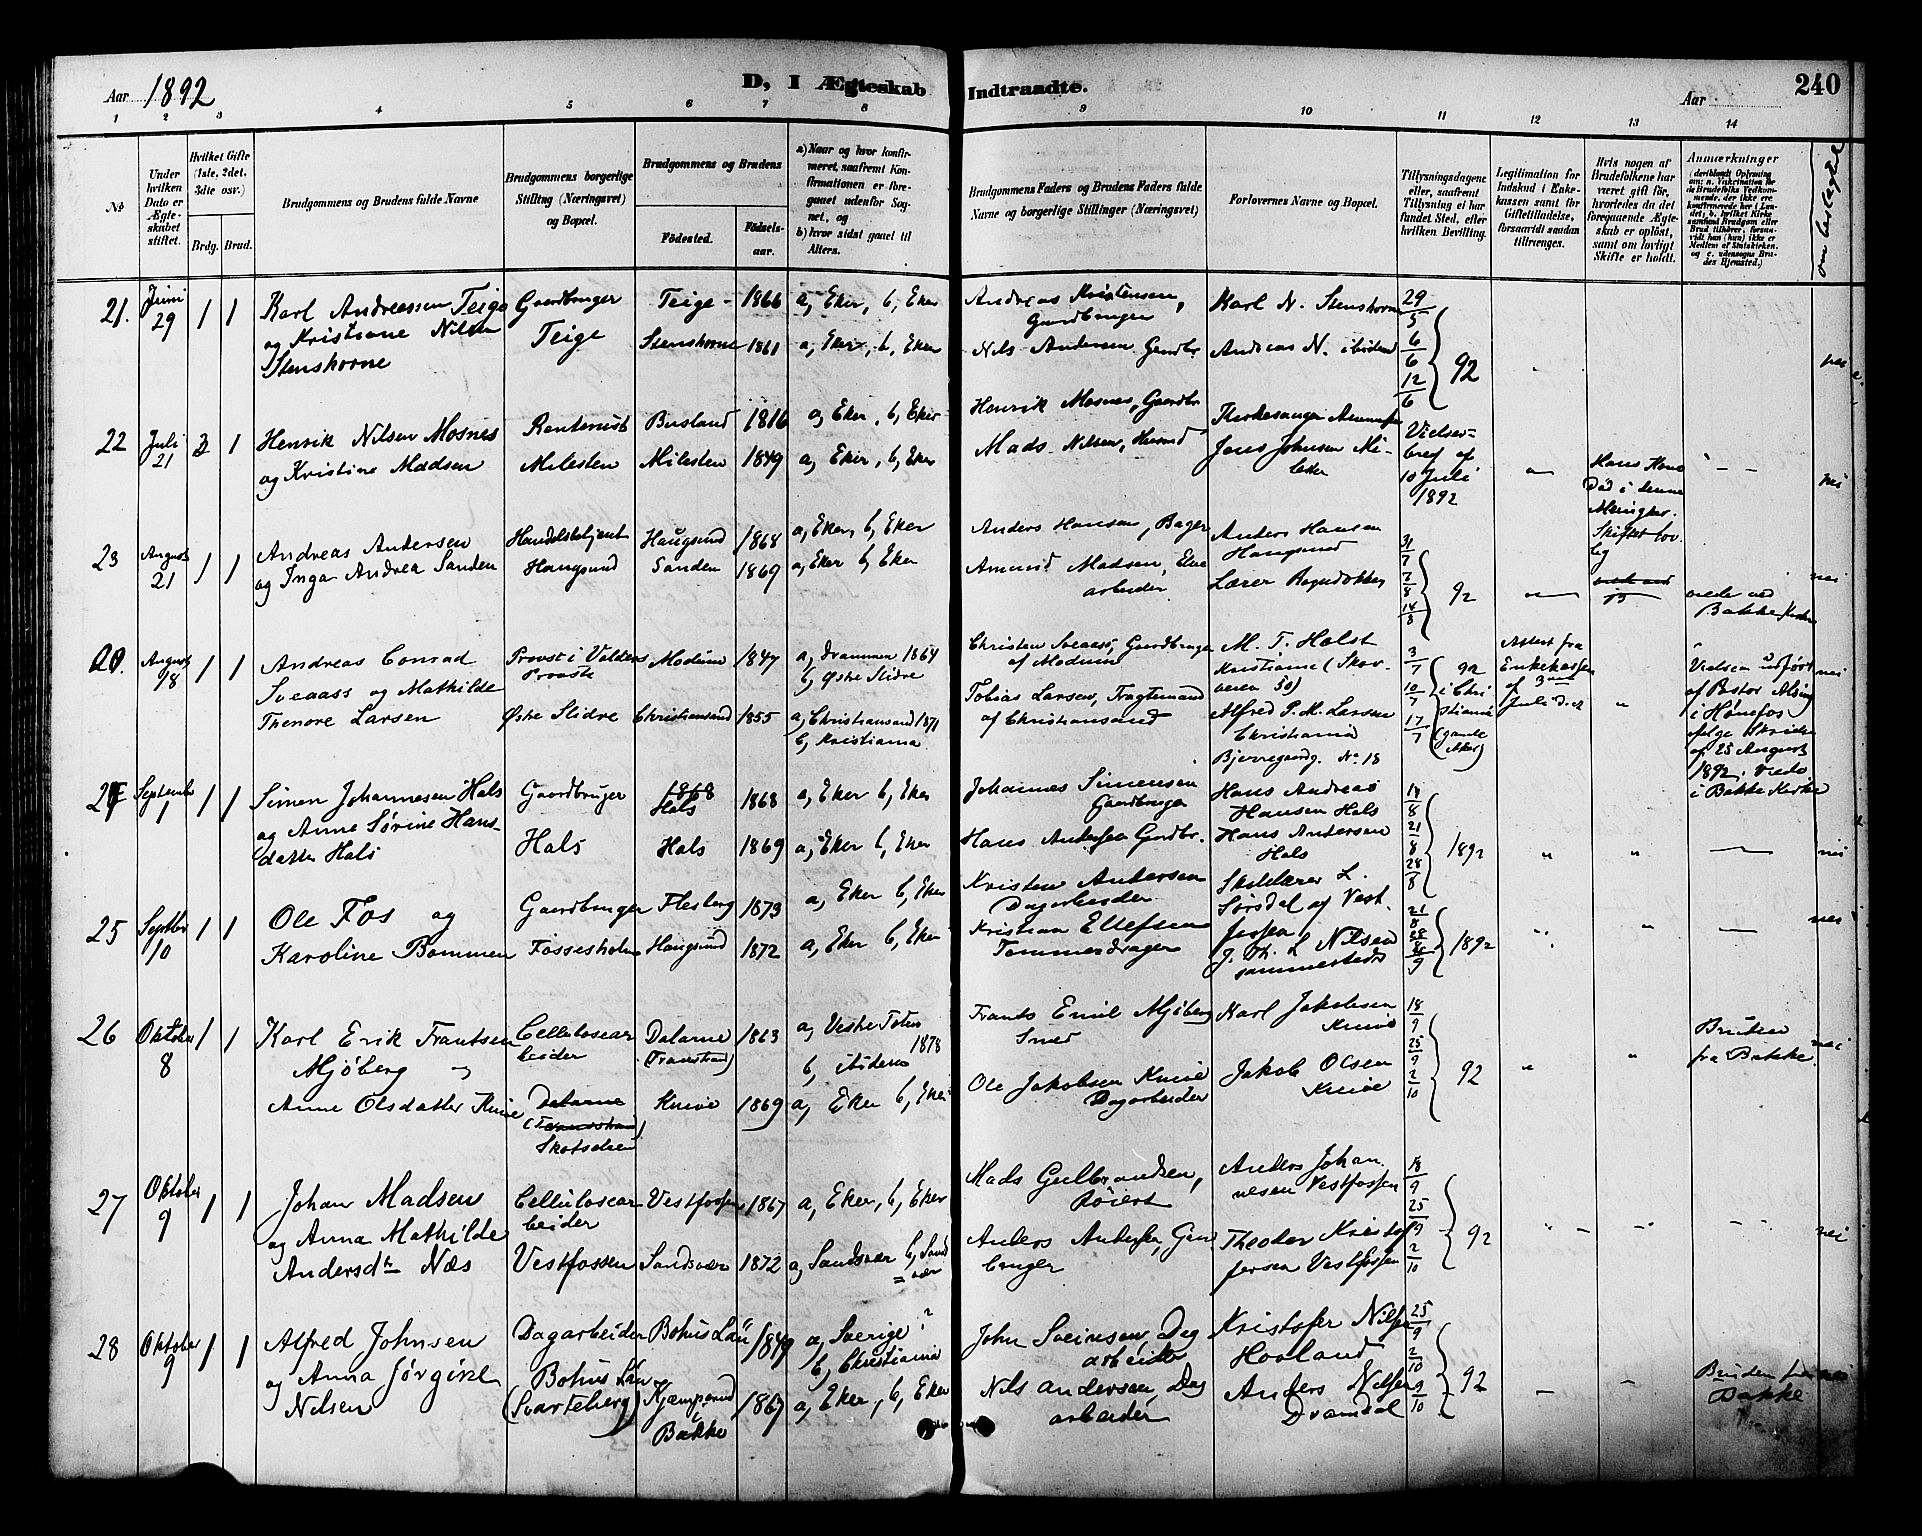 Aar 1892
D, I Ægteskab Indtraadte.
Aar
240
1 2 3 4 5 6 7 8 9 10 11 12 13 14
№
Under hvilken Dato er Ægteskabet stiftet.
Hvilket Gifte (1ste, 2det, 3die osv.)
Brdg. Brud.
Brudgommens og Brudens fulde Navne
Brudgommens borgerlige Stilling (Næringsvei) og Bopæl.
Brudgommens og Brudens
Fødested.
Fødselsaar.
a) Naar og hvor konfirmeret, saafremt Konfirmationen er foregaaet udenfor Sognet, og
b) hvor sidst gaaet til Alters.
Brudgommens Faders og Brudens Faders fulde Navne og borgerlige Stillinger (Næringsvei)
Forlovernes Navne og Bopæl.
Tillysningsdagene eller, saafremt Tillysning ei har fundet Sted, efter hvilken Bevilling.
Legitimation for Indskud i Enkekassen samt for Giftetilladelse, forsaavidt saadan tiltrænges.
Hvis nogen af Brudefolkene har været gift før, hvorledes da det foregaaende Ægteskab er opløst, samt om lovligt Skifte er holdt.
Anmærkninger
om beslægtet
21. Juni 29 1 1
Karl Andreassen Teige
og Kristiane Nilsen
Stenshorne
Gaardbruger
Teige
Teige - 1866 a, Eker, b, Eker
Stenshorne 1861 a, Eker, b, Eker
Andreas Kristensen,
Gardbruger
Nils Andersen Gardbr.
Karl N. Stenshorne
Andreas N. ibidem
29/5 6/6 12/6 92
nei
22 Juli 21 3 1
Henrik Nilsen Mosnes
og Kristine Madsen
Rentenist
Milesten
Busland 1816 a, Eker, b, Eker
Milesten 1849 a, Eker, b, Eker
Henrik Mosnes, Gaardbr.
Mads Nilsen, Husmd
Kirkesanger
Jens Johnsen Mi-
Vielsesbrev af
10 Juli
1892
Hans Kone
Død i denne
Menighet.
Skiftet lov.
lig
nei
23 August 21 1 1
Andreas Andersen
og Inga Andrea Sanden
Handelsbetjent
Haugsund
Haugsund 1868 a, Eker, b, Eker
Sanden 1869 a, Eker b, Eker
Anders Hansen, Bager
Amund Madsen,
arbeider
Anders Hansen
Haugsund
Lærer
31/7 7/8 14/8 92
Bakke Kirke
nei
August 8 1 1
Andreas Conrad
Sveaass og Mathilde
Thenore Larsen
Provst i Valders
Provsti
Østre Slidre
Modum 1847 a, Drammen 1864
b, Østre Slidre
Christiansand 1855 a, Christiansand 1871
b, Kristiania.
Christen Sveaass, Gaardbruger
af Modum
Tobias Larsen, Fragtemand
af Christiansand
M. T. Holst
Kristiania (Skov-
veien 50)
Alfred P. M. Larsen
Christiania
Bjerregaardg. No 18
3/7 10/7 17/7
92
i Chri
stiania
(gamle
Aker)
Attest fra
Enkekassen
af 3die
Juli d. A
Vielsen udført
af Pastor
i Hønefos
ifølge Skrivelse
af 25 August
1892. Viede
i Bakke Kirke
nei
September 1 1 1
Simen Johannesen Hals
og Anne Sørine Hans-
datter Hals
Gaardbruger
Hals
1868
Hals 1868 a, Eker b, Eker
Hals 1869 a, Eker b, Eker
Johannes Simensen
Gaardbruger
Hans Andersen Gardbr.
Hans Andreas
Hansen Hals
Hans Andersen
Hals
14/8 21/8 28/8 1892
nei
25 Septbr 10 1 1
Ole Fos og
Karoline Bommen
Gaardbruger
Fossesholm
Flesberg 1873 a, Eker b, Eker
Haugsund 1872 a, Eker b, Eker
Kristen Andersen
Dagarbeider
Kristian Ellefsen
Tømmerdrager
Skolelærer L.
Sørsdal af Vest-
fossen,
J. Th. L Nilsen
sammesteds
21/8 28/8 9 1892
nei
26 Oktober 8 1 1
Karl Erik Frantsen
Mjøberg og
Anne Olsdatter Knive
Cellulosear
beider
Dalarne
(Transtrand)
Skotselven
Dalarne 1863
(Transtrand)
a, Vestre Toten 1878
b, ibidem
Knive 1869 a, Eker b, Eker
Frants Emil Mjøberg
Smed
Ole Jakobsen Knive
Dagarbeider
Karl Jakobsen
Knive
Jakob Olsen
Knive
18/9 25/9 2/10 92
Bruden
fra Bakke
nei
27 Oktober 9 1 1
Johan Madsen
og Anna Mathilde
Andersdtr Næs
Cellulosear
beider
Vestfossen
Vestfossen 1867 a, Eker, b, Eker
Sandsvær 1872 a, Sandsvær b, Sand
=vær
Mads Gulbrandsen,
Røiert
Anders Andersen, Gaard
bruger
Anders Johan
nesen Vestfossen
Theodor Kristof
fersen Vestfossen
18/9 25/9 2/10 92
nei
28 Oktober 9 1 1
Alfred Johnsen
og Anna Jørgine
Nilsen
Dagarbeider
Bohus Län
(Svarteberg)
Bohus Län 1849 a, Sverige?
b, Christiania
Kjæmperud
i
Bakke
1867 a, Eker, b, Eker
John Sveinsen, Dag
arbeider
Nils Andersen, Dag
arbeider
Kristofer Nilsen
Hovland
Anders Nilsen
Dramdal
25/9 2/10 9/10 92
Bruden fra
Bakke
nei